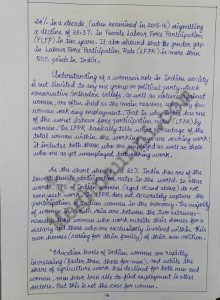 24% in a decade, (when examined in 2015-16) signalling
a decline of 33-37. in Female Labour Force Participation
(FLFP) in ten years. It also showed that the gender gap
in Labour Force Participation Rate (LFPR) is more than
50% points in India.
Understanding of a woman's role in Indian society
is not limited to any one group or political party which
conservative Hindutva
women, are often held as the main reasons why few
women seek any employment. That is why India has one
of the lowest labour force participation rates (LFPR) by
women. The LFPR basically tells what percentage of the
total women within the working age are seeking work;
it includes both those who are employed as well as those
who are as yet unemployed but seeking work.
As the chart shows at 21% Indian has one of the
lowest female participation rates in the world. In other
words 79% of Indian women (aged 15 and above) do not
even seek work. LFPR does not accurately capture the
participation of women in the economy. The majority
of women in South Asia are between the two extremes:
women who work outside their homes for a
salary and those who are exclusively involved within their
own homes (caring for their family) of their own volition.
"Education levels of Indian women are rapidly
increasing (faster than those for men), and while the
share of agriculture work has declined for both men and
women, men have been able to find employment in other
sectors. But this is not the case for women.